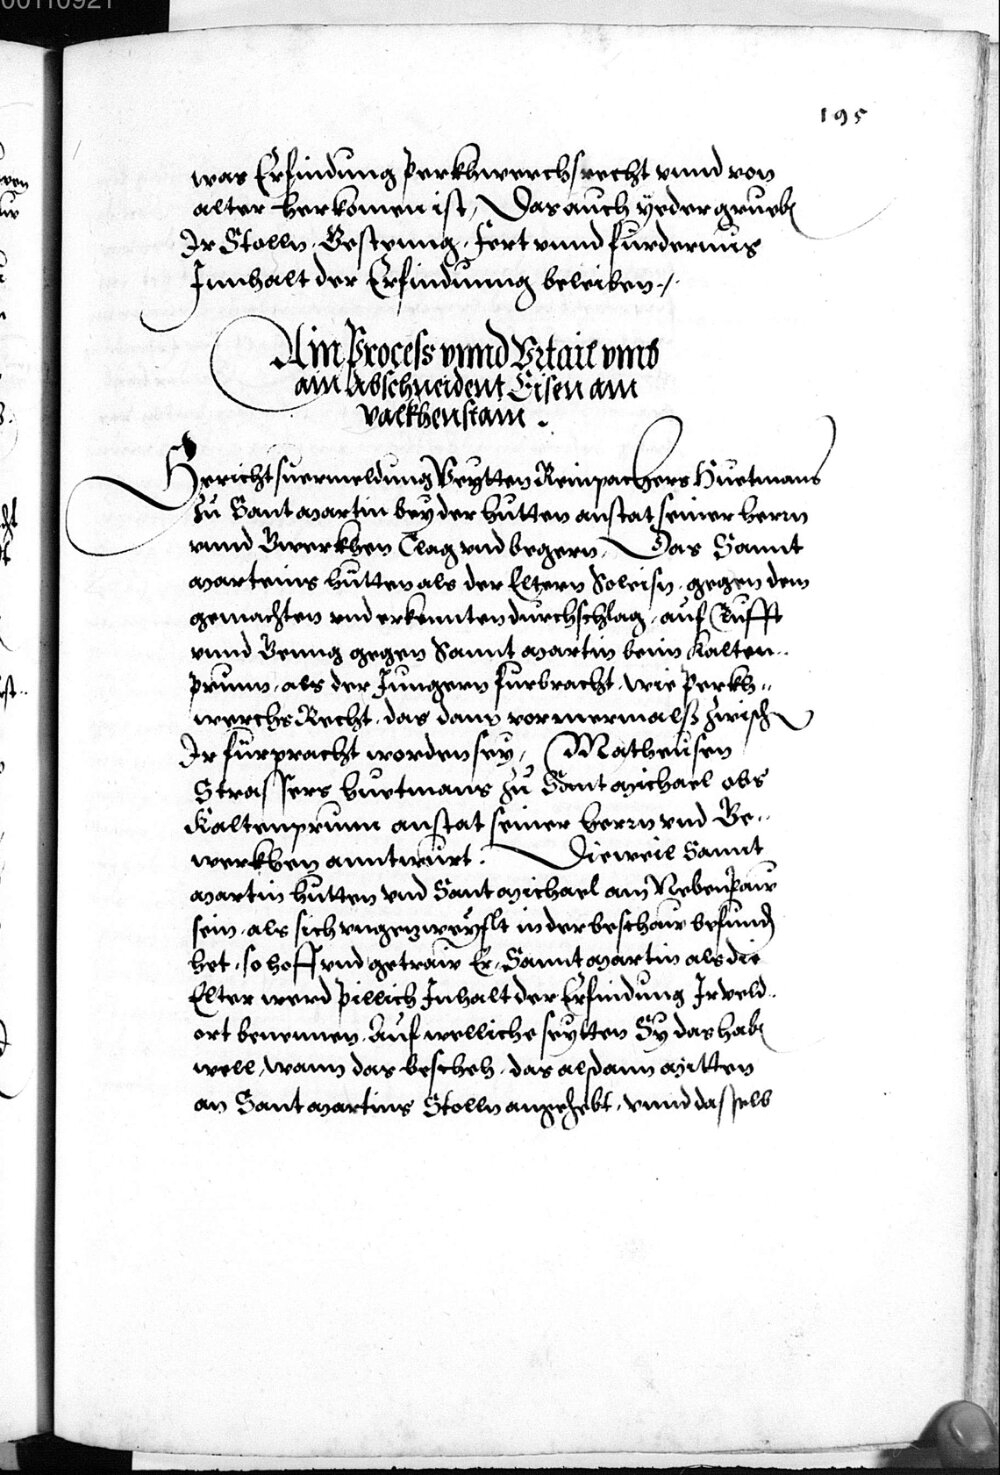 00110921
195
was Erfindung Perkhwerchsrecht vnnd von
alter herkomen ist, Das auch yeder grueb
Ir Stolln. Bestenng. Fert vnnd furdernus
Innhalt der Erfindunng beleiben./.
Ain Process vnnd Vrtail vmb
ain Abschneident Eisen am
valkhenstain.
Gerichtsuermeldung Veytten Reinpachers Huetmans
zu Sant Martin bey der hutten anstat seiner herrn
vnnd Gwerkhen Clag vnd begern. Das Sannt
Marteins hutten als der Eltern gegen dem
gemachten vnd erkennten durchschlag, auf Clufft
vnnd Genng gegen Sannt Martin beim Kalten..
prunn, als der Jungern furbracht, wie Perkh..
werchs Recht, das dann vormermalß zwisch
Ir fürpracht worden sey, Matheusen
Strassers huetmans zu Sant Michael obs
Kaltenprunn anstat seiner herrn vnd Ge..
werkhen anntwurt. Dieweil Sannt
Martin hutten vnd Sant Michael am Nebenpaw
sein, als sich vngezweyflt in der beschaw befund
het, so hoff vnd getraw Er, Sannt Martin als die
Elter werd pillich Inhalt der Erfindung Ir veld..
ort benennen. Auf welliche seytten Sy das hab
well, wann das bescheh, das alsdann Mitten
an Sant Martins Stolln angehebt, vnnd dasselb